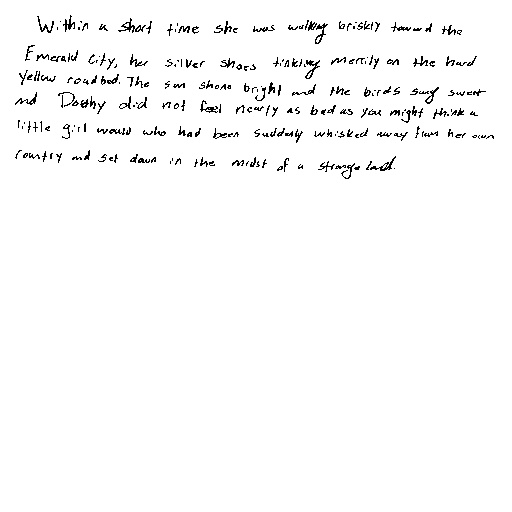 Within a short time she was walking briskly toward the
Emerald City, her silver shoes tinkling merrily on the hard
yellow roadbed. The sun shone bright and the birds sang sweet
and Dorothy did not feel nearly as bad as you might think a
little girl would who had been suddenly whisked away from her own
country and set down in the midst of a strange land.